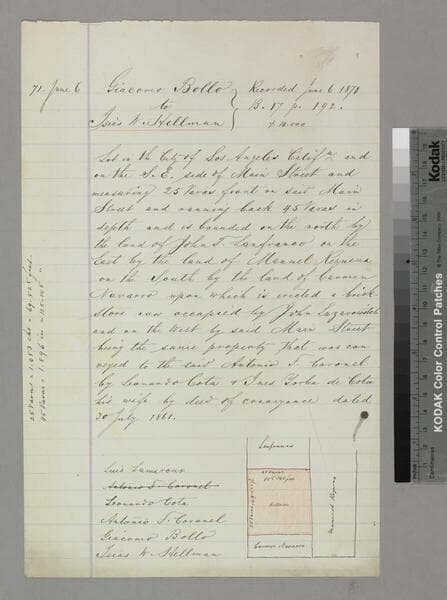 71. June 6
Giacomo Bollo
to
Isias W. Hellman
Recorded June 6 1871
B. 17 p. 192.
Lot in the City of Los Angeles Califa and
on the S. E. side of Main Street and
measuring 25 Varas front on said Main
Street and running back 45 Varas in
depth and is bounded on the north by
the land of John T. Lanfranco on the
East by the land of Manuel Requena
on the South by the land of Carmen
Navarro upon which is erected a brick
store now occupied by John Lazarowitch
and on the West by said Main Street
being the same property that was con
veyed to the said Antonio F. Coronel
by Leonardo Cota & Ines Borba de Cota
his wife by deed of conveyance dated
30 July 1861.
Luis Lameroux
Antonio F. Coronel
Leonardo Cota
Antonio F. Coronel
Giacomo Bollo
Isias W. Hellman
Lanfranco
45 Varas
Hellman
Carmen Navarro
Manuel Requena
KODAK Color Control Patches
Kodak
Centimetres